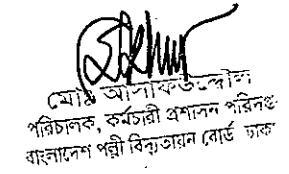 মোঃ আসাফউদ্দৌলা
পরিচালক, কর্মচারী প্রশাসন পরিদপ্তর
বাংলাদেশ পল্লী বিদ্যুতায়ন বোর্ড ঢাকা